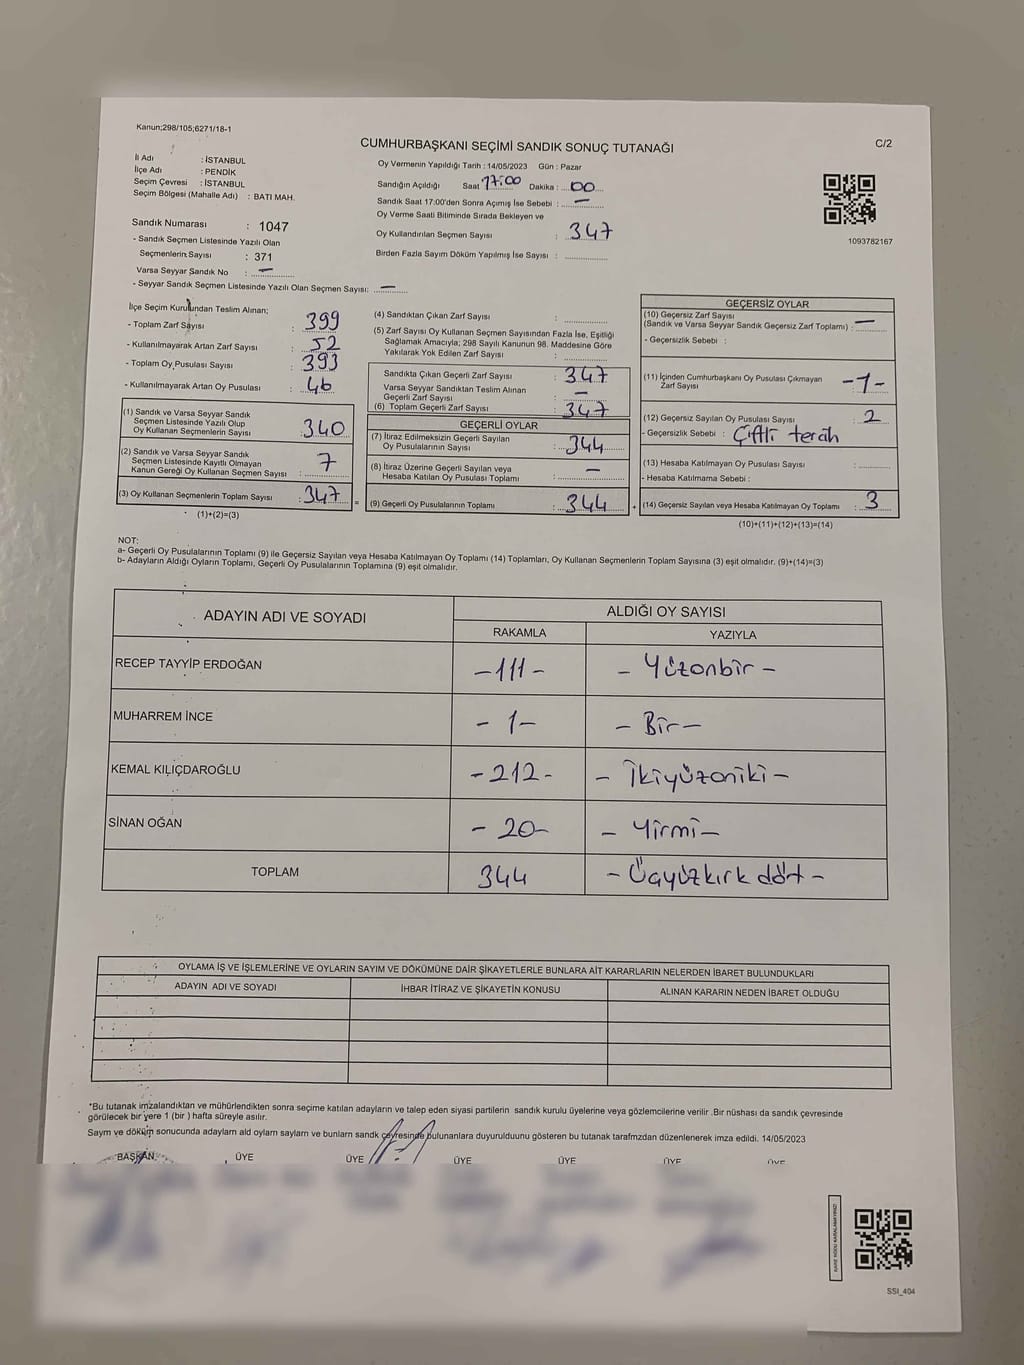 Kanun;298/105;6271/18-1
CUMHURBAŞKANI SEÇİMİ SANDIK SONUÇ TUTANAĞI
C/2
İl Adı : İSTANBUL
İlçe Adı : PENDİK
Seçim Çevresi : İSTANBUL
Seçim Bölgesi (Mahalle Adı) : BATI MAH.
Sandık Numarası : 1047
- Sandık Seçmen Listesinde Yazılı Olan
Seçmenlerin Sayısı : 371
Varsa Seyyar Sandık No : —
- Seyyar Sandık Seçmen Listesinde Yazılı Olan Seçmen Sayısı: —
Oy Vermenin Yapıldığı Tarih : 14/05/2023 Gün : Pazar
Sandığın Açıldığı Saat 17:00 Dakika : 00
Sandık Saat 17:00'den Sonra Açımış İse Sebebi : —
Oy Verme Saati Bitiminde Sırada Bekleyen ve
Oy Kullandırılan Seçmen Sayısı : 347
Birden Fazla Sayım Döküm Yapılmış İse Sayısı :
1093782167
İlçe Seçim Kurulundan Teslim Alınan;
- Toplam Zarf Sayısı : 399
- Kullanılmayarak Artan Zarf Sayısı : 52
- Toplam Oy Pusulası Sayısı : 393
- Kullanılmayarak Artan Oy Pusulası : 46
(1) Sandık ve Varsa Seyyar Sandık
Seçmen Listesinde Yazılı Olup
Oy Kullanan Seçmenlerin Sayısı : 340
(2) Sandık ve Varsa Seyyar Sandık
Seçmen Listesinde Kayıtlı Olmayan
Kanun Gereği Oy Kullanan Seçmen Sayısı : 7
(3) Oy Kullanan Seçmenlerin Toplam Sayısı : 347 =
(1)+(2)=(3)
(4) Sandıktan Çıkan Zarf Sayısı :
(5) Zarf Sayısı Oy Kullanan Seçmen Sayısından Fazla İse, Eşitliği
Sağlamak Amacıyla; 298 Sayılı Kanunun 98. Maddesine Göre
Yakılarak Yok Edilen Zarf Sayısı :
Sandıkta Çıkan Geçerli Zarf Sayısı : 347
Varsa Seyyar Sandıktan Teslim Alınan
Geçerli Zarf Sayısı : —
(6) Toplam Geçerli Zarf Sayısı : 347
GEÇERLİ OYLAR
(7) İtiraz Edilmeksizin Geçerli Sayılan
Oy Pusulalarının Sayısı : 344
(8) İtiraz Üzerine Geçerli Sayılan veya
Hesaba Katılan Oy Pusulası Toplamı : —
(9) Geçerli Oy Pusulalarının Toplamı : 344 +
GEÇERSİZ OYLAR
(10) Geçersiz Zarf Sayısı
(Sandık ve Varsa Seyyar Sandık Geçersiz Zarf Toplamı) : —
- Geçersizlik Sebebi :
(11) İçinden Cumhurbaşkanı Oy Pusulası Çıkmayan
Zarf Sayısı -1-
(12) Geçersiz Sayılan Oy Pusulası Sayısı : 2
- Geçersizlik Sebebi : Çiftli tercih
(13) Hesaba Katılmayan Oy Pusulası Sayısı :
- Hesaba Katılmama Sebebi :
(14) Geçersiz Sayılan veya Hesaba Katılmayan Oy Toplamı : 3
(10)+(11)+(12)+(13)=(14)
NOT:
a- Geçerli Oy Pusulalarının Toplamı (9) ile Geçersiz Sayılan veya Hesaba Katılmayan Oy Toplamı (14) Toplamları, Oy Kullanan Seçmenlerin Toplam Sayısına (3) eşit olmalıdır. (9)+(14)=(3)
b- Adayların Aldığı Oyların Toplamı, Geçerli Oy Pusulalarının Toplamına (9) eşit olmalıdır.
ADAYIN ADI VE SOYADI
ALDIĞI OY SAYISI
RAKAMLA YAZIYLA
RECEP TAYYİP ERDOĞAN -111- - Yüzonbir -
MUHARREM İNCE - 1- - Bir-
KEMAL KILIÇDAROĞLU -212- - İkiyüzoniki -
SİNAN OĞAN - 20- - Yirmi-
TOPLAM 344 - Üçyüzkırk dört -
OYLAMA İŞ VE İŞLEMLERİNE VE OYLARIN SAYIM VE DÖKÜMÜNE DAİR ŞİKAYETLERLE BUNLARA AİT KARARLARIN NELERDEN İBARET BULUNDUKLARI
ADAYIN ADI VE SOYADI İHBAR İTİRAZ VE ŞİKAYETİN KONUSU ALINAN KARARIN NEDEN İBARET OLDUĞU
*Bu tutanak imzalandıktan ve mühürlendikten sonra seçime katılan adayların ve talep eden siyasi partilerin sandık kurulu üyelerine veya gözlemcilerine verilir .Bir nüshası da sandık çevresinde
görülecek bir yere 1 (bir ) hafta süreyle asılır.
Saym ve döküm sonucunda adaylarn ald oylarn saylarn ve bunlarn sandk çevresinde bulunanlara duyurulduunu gösteren bu tutanak tarafmzdan düzenlenerek imza edildi. 14/05/2023
BAŞKAN ÜYE ÜYE ÜYE ÜYE ÜYE ÜYE
KARE KODU KARALAMAYINIZ!
SSI_404